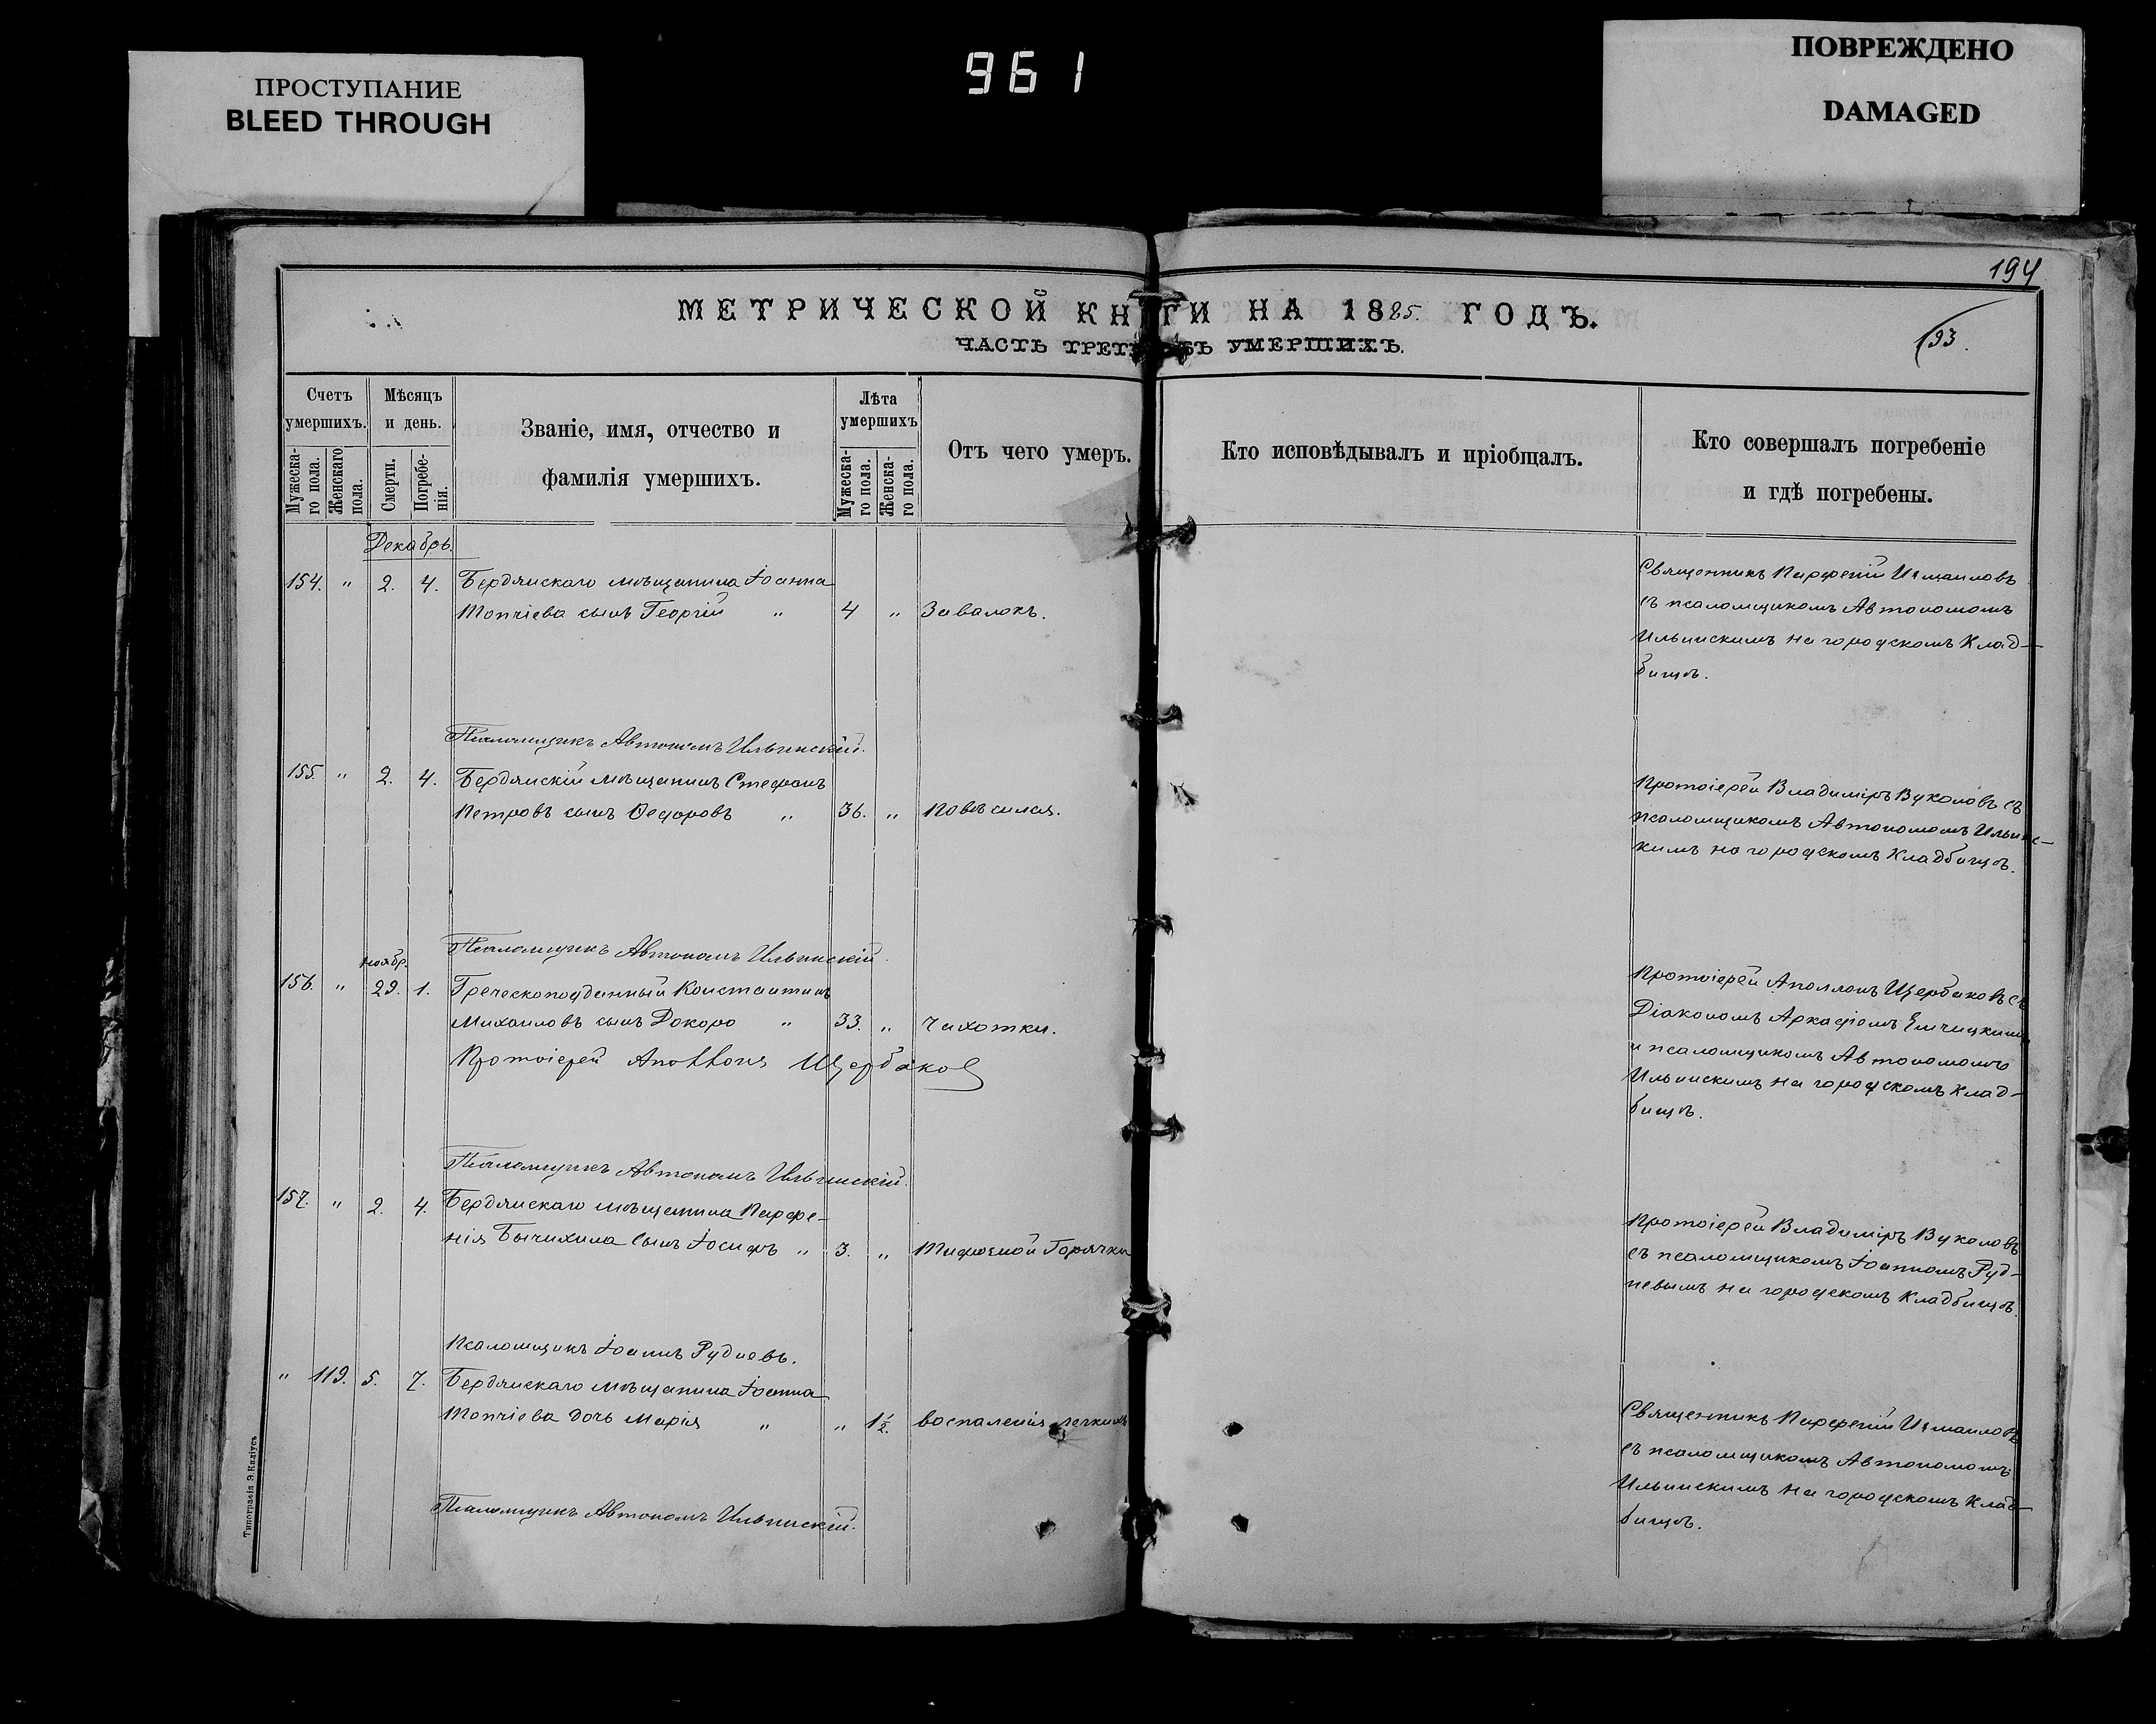 ПРОСТУПАНИЕ
BLEED THROUGH
961
ПОВРЕЖДЕНО
DAMAGED
194
МЕТРИЧЕСКОЙ КНИГИ НА 1885. ГОДЪ.
193.
ЧАСТЬ ТРЕТЬЯ УМЕРШИХЪ.
Счетъ умершихъ.
Мужеска-го пола.
Женскаго пола.
Мѣсяцъ и день.
Смерти.
Погребе-нія.
Званіе, имя, отчество и
фамилія умершихъ.
Лѣта умершихъ
Мужеска-го пола.
Женска-го пола.
Отъ чего умеръ.
Кто исповѣдывалъ и пріобщалъ.
Кто совершалъ погребеніе
и гдѣ погребены.
Декабрь.
154. " 2. 4. Бердянскаго мѣщанина Іоанна
Топчіева сынъ Георгій " 4 " Завалокъ.
Священникъ Парфеній Измаиловъ
съ псаломщикомъ Автономомъ
Ильинскимъ на городскомъ Клад-
бищѣ.
Псаломщикъ Автономъ Ильинскій.
155. " 2. 4. Бердянскій мѣщанинъ Стефанъ
Петровъ сынъ Ѳедоровъ " 36. " Повѣсился.
Протоіерей Владиміръ Вуколовъ съ
псаломщикомъ Автономомъ Ильинс-
кимъ на городскомъ Кладбищѣ.
Псаломщикъ Автономъ Ильинскій.
ноябр.
156. " 29. 1. Греческоподданный Константинъ
Михаиловъ сынъ Докоро " 33. " Чахотки.
Протоіерей Аполлонъ Щербаков
Протоіерей Аполлонъ Щербаковъ съ
Діакономъ Аркадіемъ
и псаломщикомъ Автономомъ
Ильинскимъ на городскомъ Клад-
бищѣ.
Псаломщикъ Автономъ Ильинскій.
157. " 2. 4. Бердянскаго мѣщанина Парфе-
нія Бычихина сынъ Іосифъ " 3. " Тифозной Горячки
Протоіерей Владиміръ Вуколовъ
съ псаломщикомъ Іоанномъ Руд-
невымъ на городскомъ Кладбищѣ.
Псаломщикъ Іоаннъ Рудневъ.
" 119. 5. 7. Бердянскаго мѣщанина Іоанна
Топчіева дочь Марія " " 1½. воспаленія легкихъ
Священникъ Парфеній Измаиловъ
съ псаломщикомъ Автономомъ
Ильинскимъ на городскомъ Клад-
бищѣ.
Псаломщикъ Автономъ Ильинскій.
Типографія Э. Киліусъ